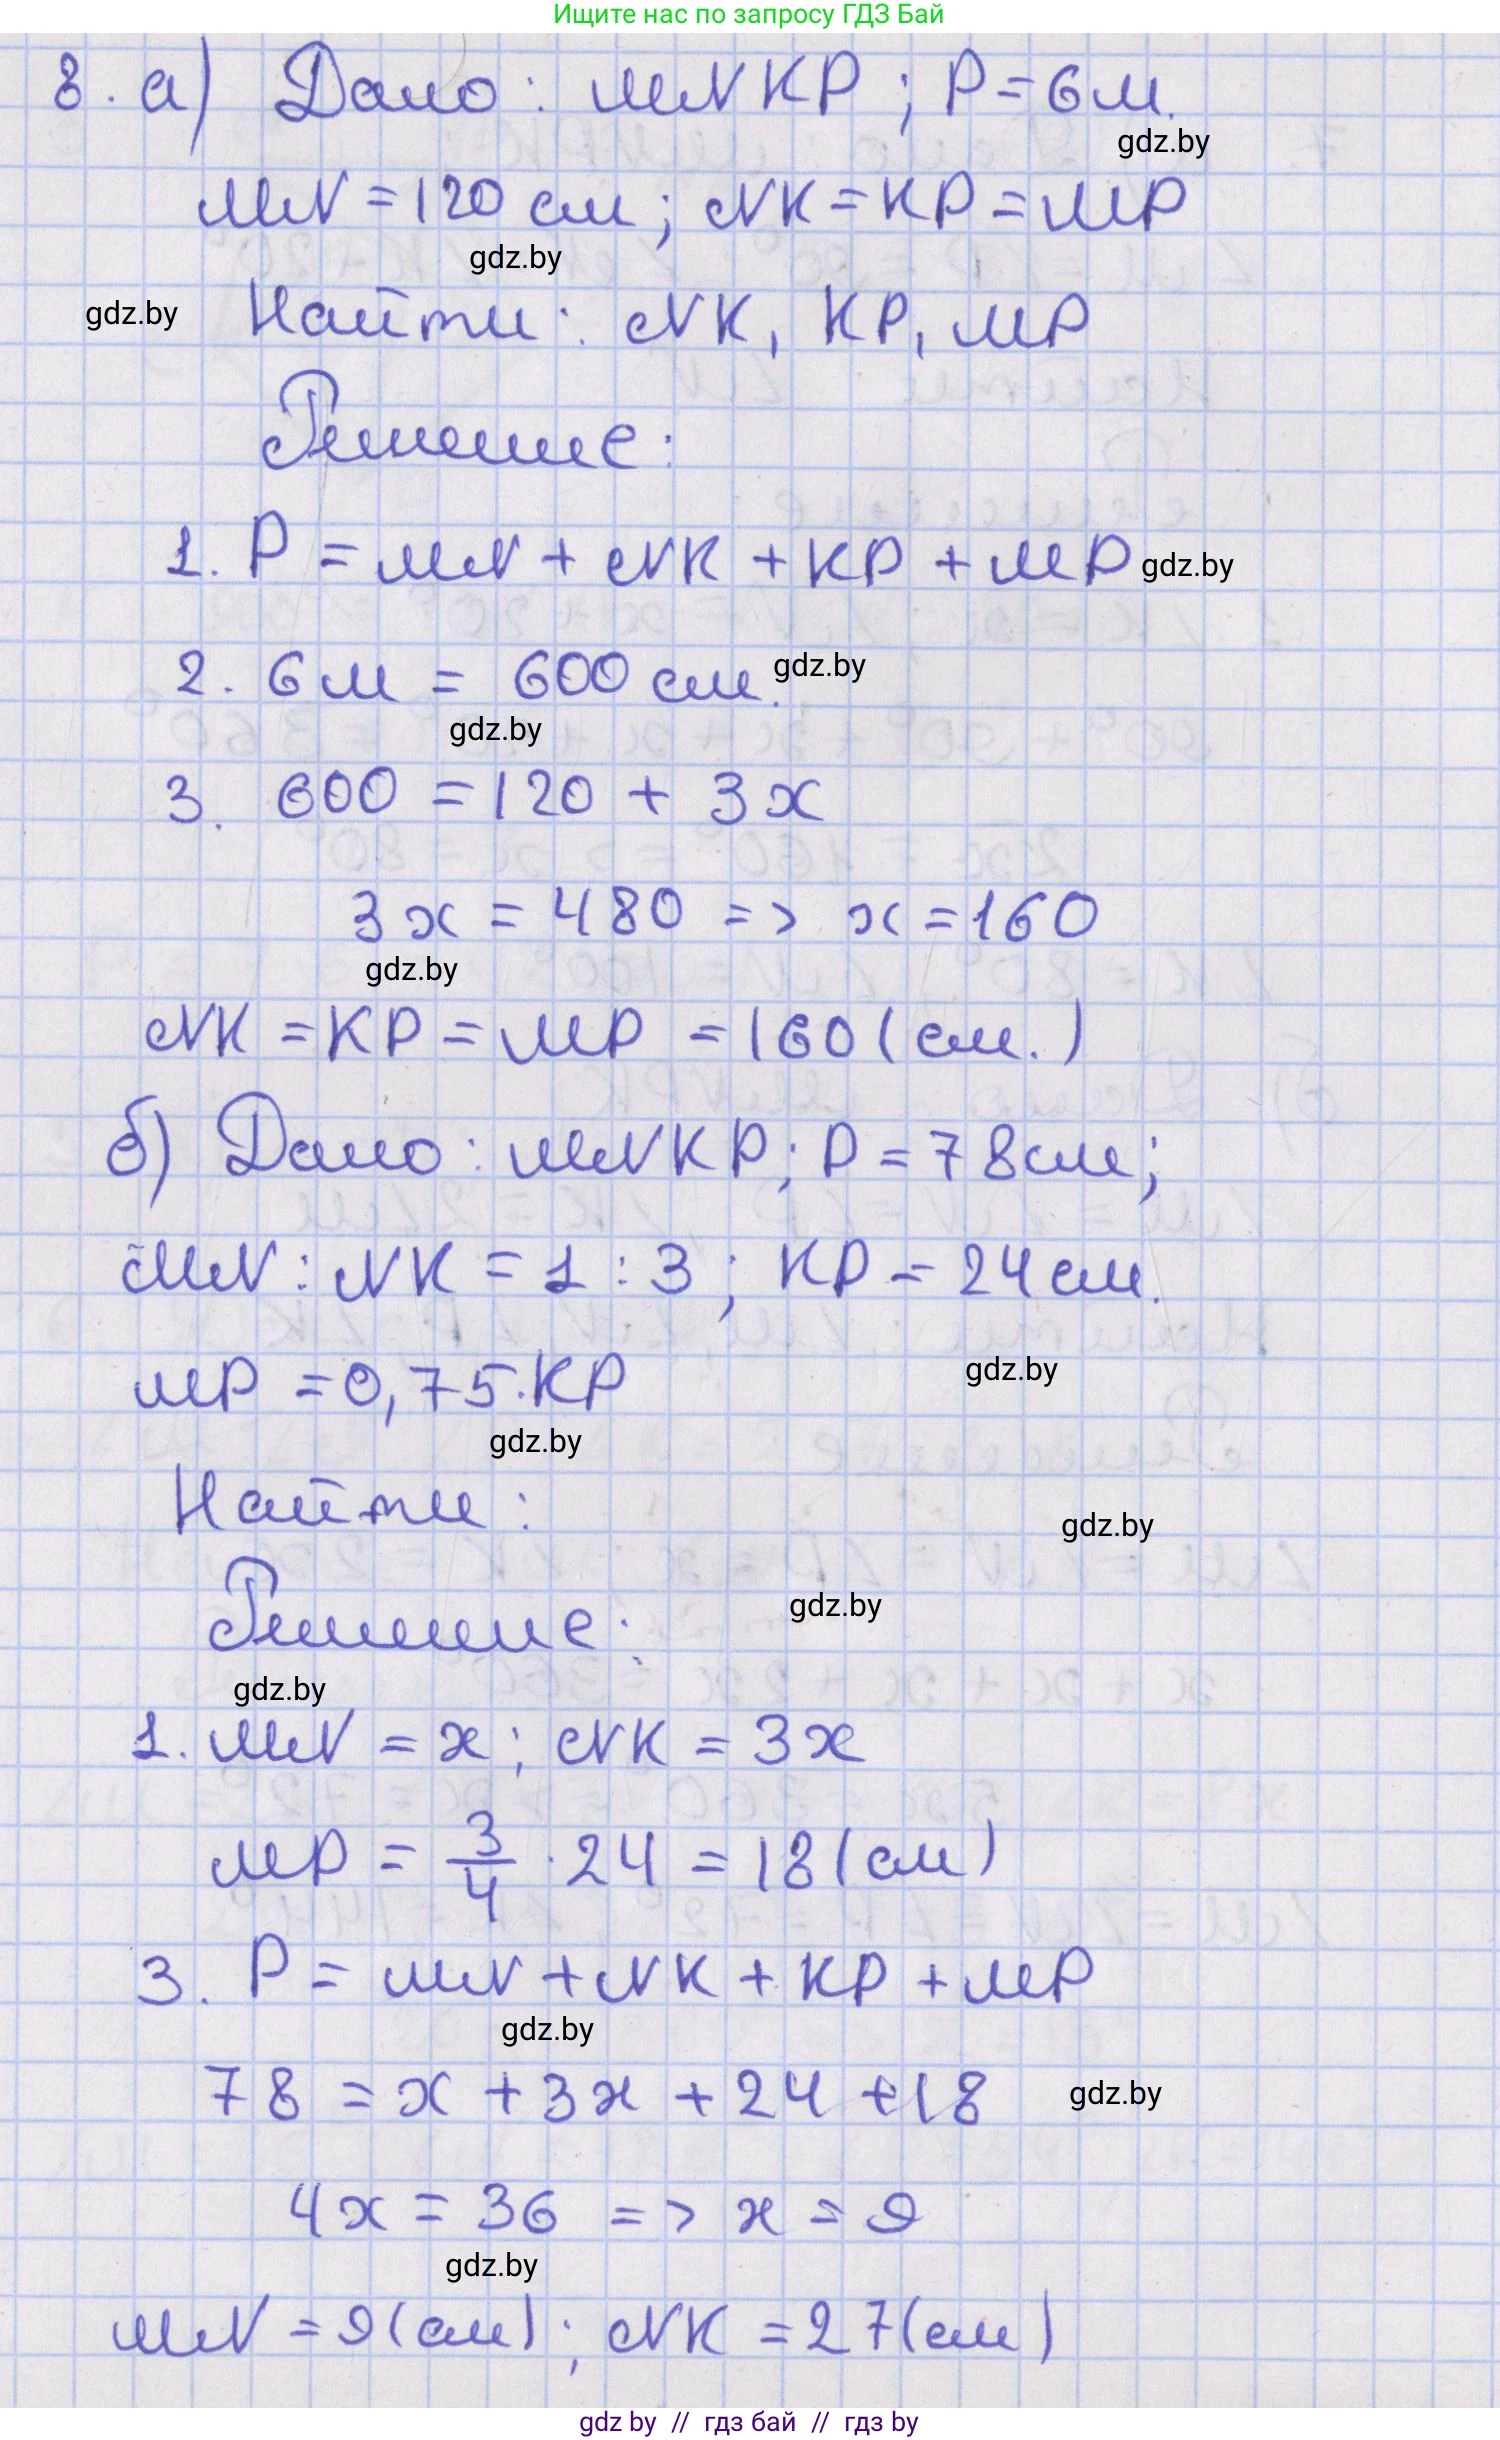 Ищите нас по запросу ГДЗ Бай
8. а) Дано: MNKP; P=6м.
gdz.by
MN=120 см; NK=KP=MP
gdz.by
gdz.by Найти: NK, KP, MP
Решение:
1. P = MN + NK + KP + MP gdz.by
2. 6м = 600 см. gdz.by
gdz.by
3. 600 = 120 + 3x
3x = 480 => x = 160
gdz.by
NK = KP = MP = 160 (см.)
б) Дано: MNKP; P = 78см;
MN : NK = 1 : 3; KP = 24см.
MP = 0,75·KP gdz.by
gdz.by
Найти:
gdz.by
Решение: gdz.by
gdz.by
1. MN = x; NK = 3x
MP = 3/4 · 24 = 18 (см)
3. P = MN + NK + KP + MP
gdz.by
78 = x + 3x + 24 + 18 gdz.by
4x = 36 => x = 9
gdz.by
MN = 9 (см); NK = 27 (см)
gdz by // гдз бай // гдз by